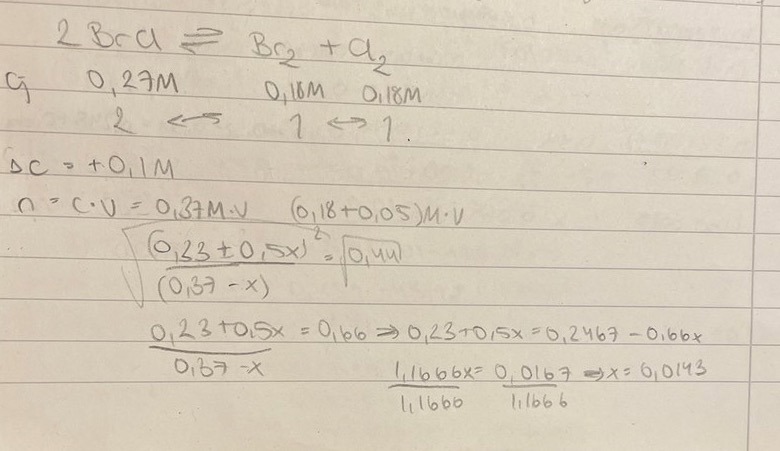 2 BrCl ⇌ Br₂ + Cl₂
Cj 0,27M 0,18M 0,18M
2 ↔ 1 ↔ 1.
ΔC = +0,1M
n = C·V = 0,37M·V (0,18+0,05)M·V
√((0,23 ± 0,5x)² / (0,37 - x)) = √0,44
(0,23+0,5x) / (0,37-x) = 0,66 ⇒ 0,23+0,5x = 0,2467 - 0,66x
1,1666x / 1,1666 = 0,0167 / 1,1666 ⇒ x = 0,0143